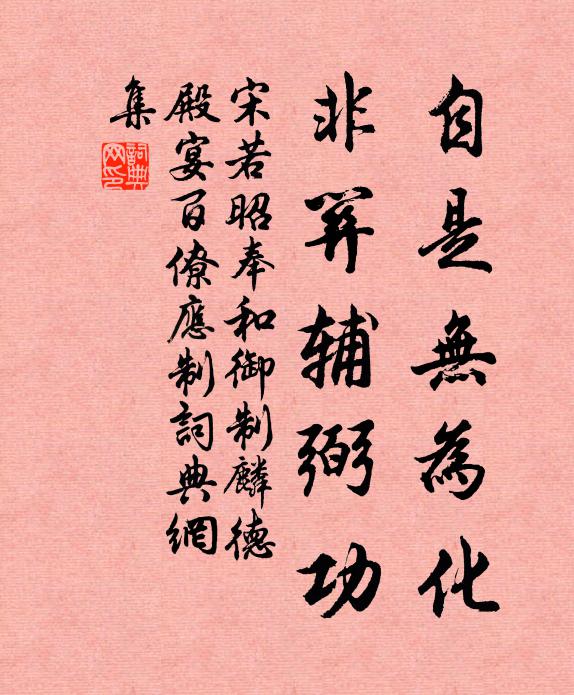 自是無為化
非關輔弼功
宋若昭奉和御制麟德
殿宴百僚應制詞典網
集
詞典網印